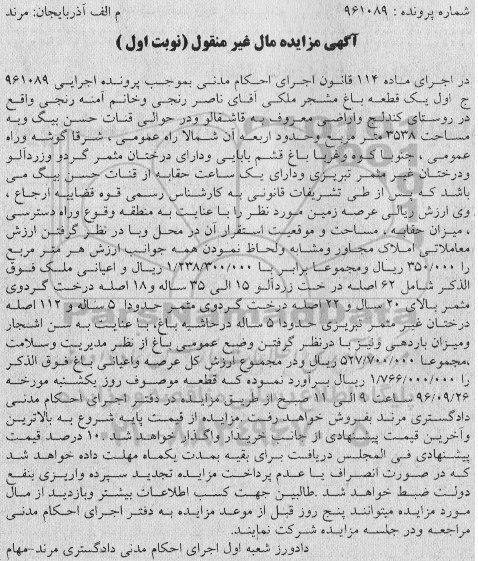 شماره پرونده : ۹۶۱۰۸۹ م الف آذربایجان: مرند
آگهی مزایده مال غیر منقول (نوبت اول )
در اجرای ماده ۱۱۴ قانون اجرای احکام مدنی بموجب پرونده اجرایی ۹۶۱۰۸۹
ج اول یک قطعه باغ مشجر ملکی آقای ناصر رنجی وخانم آمنه رنجی واقع
در روستای کندلج واراضی معروف به قاشقالو ودر حوالی قنات حسن بیگ وبه
مساحت ۳۵۳۸ متر مربع وحدود اربعه آن شمالا راه عمومی ، شرقا گوشه وراه
عمومی ، جنوبا کوه وغربا باغ قشم بابایی ودارای درختان مثمر گردو وزردآلو
ودرختان غیر مثمر تبریزی ودارای یک ساعت حقابه از قنات حسن بیگ می
باشد که پس از طی تشریفات قانونی به کارشناس رسمی قوه قضاییه ارجاع ،
وی ارزش ریالی عرصه زمین مورد نظر را با عنایت به منطقه وقوع وراه دسترسی
، میزان حقابه ، مساحت و موقعیت استقرار آن در محل وبا در نظر گرفتن ارزش
معاملاتی املاک مجاور ومشابه ولحاظ نمودن همه جوانب ارزش هر متر مربع
را ۳۵۰/۰۰۰ ریال ومجموعا برابر با ۱/۲۳۸/۳۰۰/۰۰۰ ریال و اعیانی ملک فوق
الذکر شامل ۶۲ اصله درخت زردآلو ۱۵ الی ۳۵ ساله و۱۸ اصله درخت گردوی
مثمر بالای ۲۰ سال و ۲۲ اصله درخت گردوی مثمر حدودا ۵ ساله و ۱۱۲ اصله
درختان غیر مثمر تبریزی حدودا ۵ ساله درحاشیه باغ، با عنایت به سن اشجار
ومیزان باردهی ونیز با درنظر گرفتن وضع عمومی باغ از نظر مدیریت وسلامت
،مجموعا ۵۲۷/۷۰۰/۰۰۰ ریال ودر مجموع ارزش کل عرصه واعیانی باغ فوق الذکر
را ۱/۷۶۶/۰۰۰/۰۰۰ ریال برآورد نموده که قطعه موصوف روز یکشنبه مورخه
۹۶/۰۹/۲۶ ساعت ۹ الی ۱۱ صبح از طریق مزایده در دفتر اجرای احکام مدنی
دادگستری مرند بفروش خواهد رفت. مزایده از قیمت پایه شروع به بالاترین
وآخرین قیمت پیشنهادی از جانب خریدار واگذار خواهد شد. ۱۰ درصد قیمت
پیشنهادی فی المجلس دریافت برای بقیه بمدت یکماه مهلت داده خواهد شد
که در صورت انصراف یا عدم پرداخت مزایده تجدید سپرده واریزی بنفع
دولت ضبط خواهد شد .طالبین جهت کسب اطلاعات بیشتر وبازدید از مال
مورد مزایده میتوانند پنج روز قبل از موعد مزایده به دفتر اجرای احکام مدنی
مراجعه ودر جلسه مزایده شرکت نمایند.
دادورز شعبه اول اجرای احکام مدنی دادگستری مرند-مهام
ParsNamadData